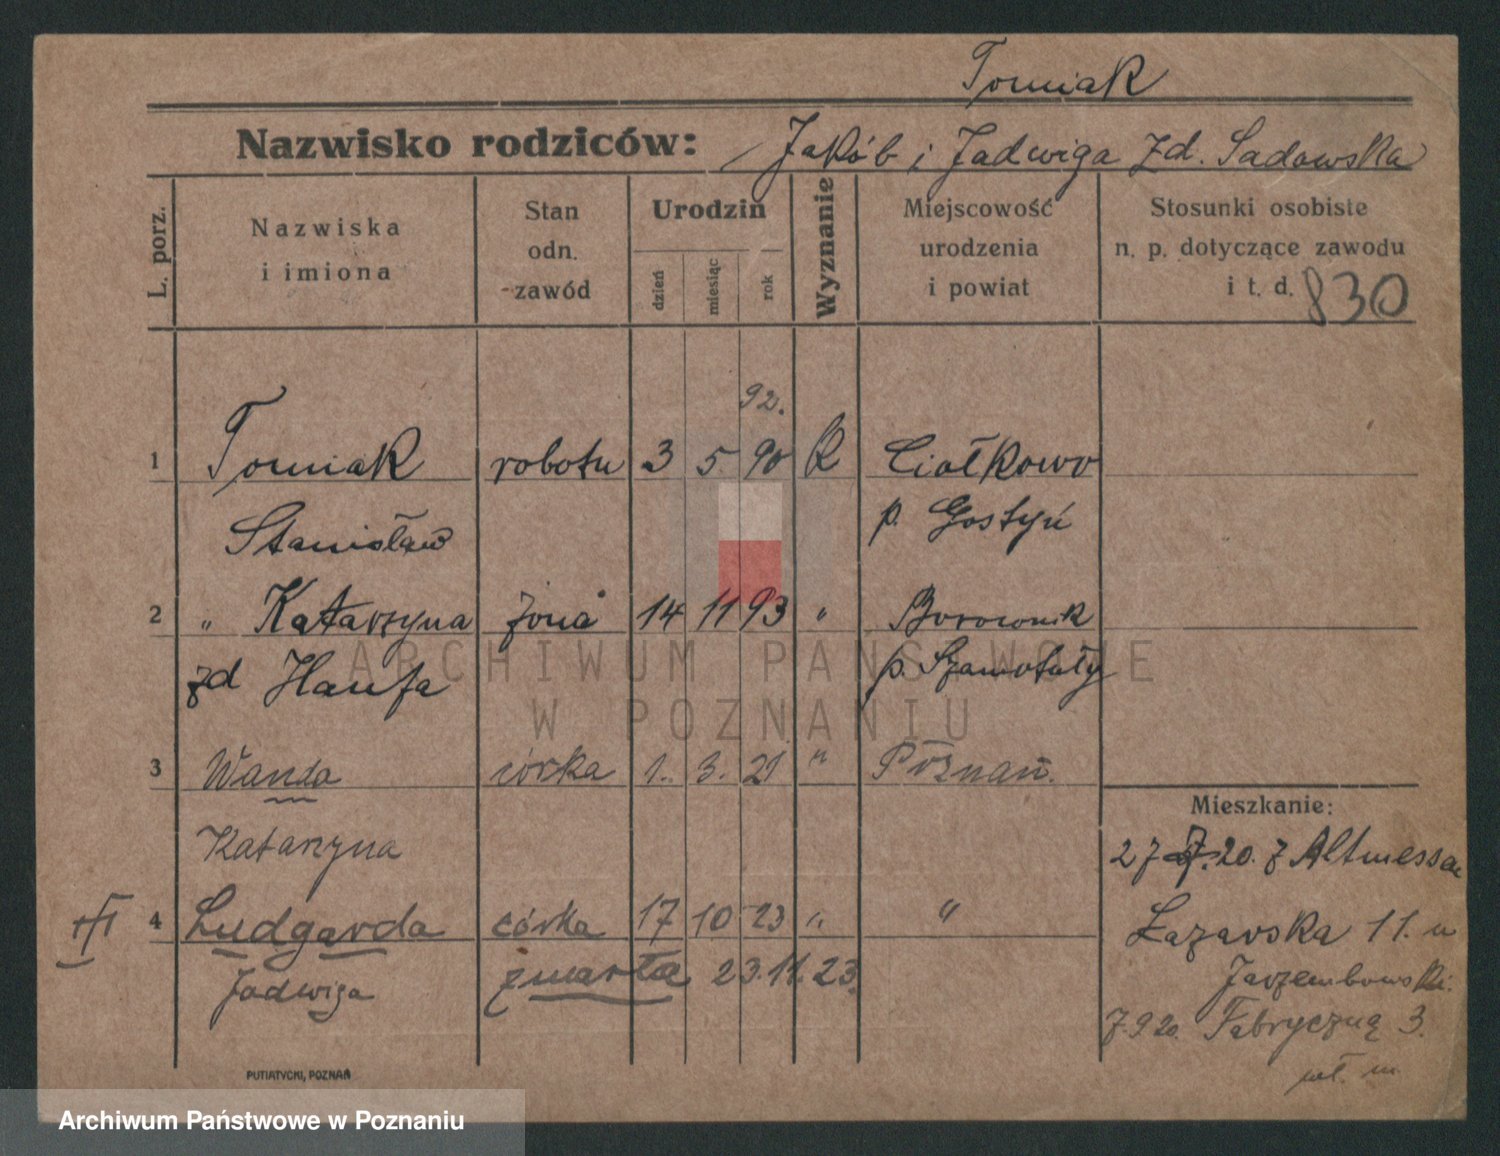 Tomiak
Nazwisko rodziców: Jakób i Jadwiga zd. Sadowska
L. porz.
Nazwiska
i imiona
Stan
odn.
zawód
Urodzin
dzień
miesiąc
rok
Wyznanie
Miejscowość
urodzenia
i powiat
Stosunki osobiste
n. p. dotyczące zawodu
i t. d. 830
92.
1 Tomiak robotn 3 5 90 R Ciołkowo
Stanisław p. Gostyń
2 " Katarzyna żona 14 11 93 " Borownik
zd Hanfa p. Szamotuły
ARCHIWUM PAŃSTWOWE
W POZNANIU
3 Wanda córka 1. 3. 21 " Poznań.
Mieszkanie:
Katarzyna
27 7. 20. z
4 Ludgarda córka 17 10 23 " "
Łazarska 11. u
III
Jadwiga zmarła 23.11.23.
Jarzembowski.
7.9 20. Fabryczną 3.
m.
PUTIATYCKI, POZNAŃ
Archiwum Państwowe w Poznaniu